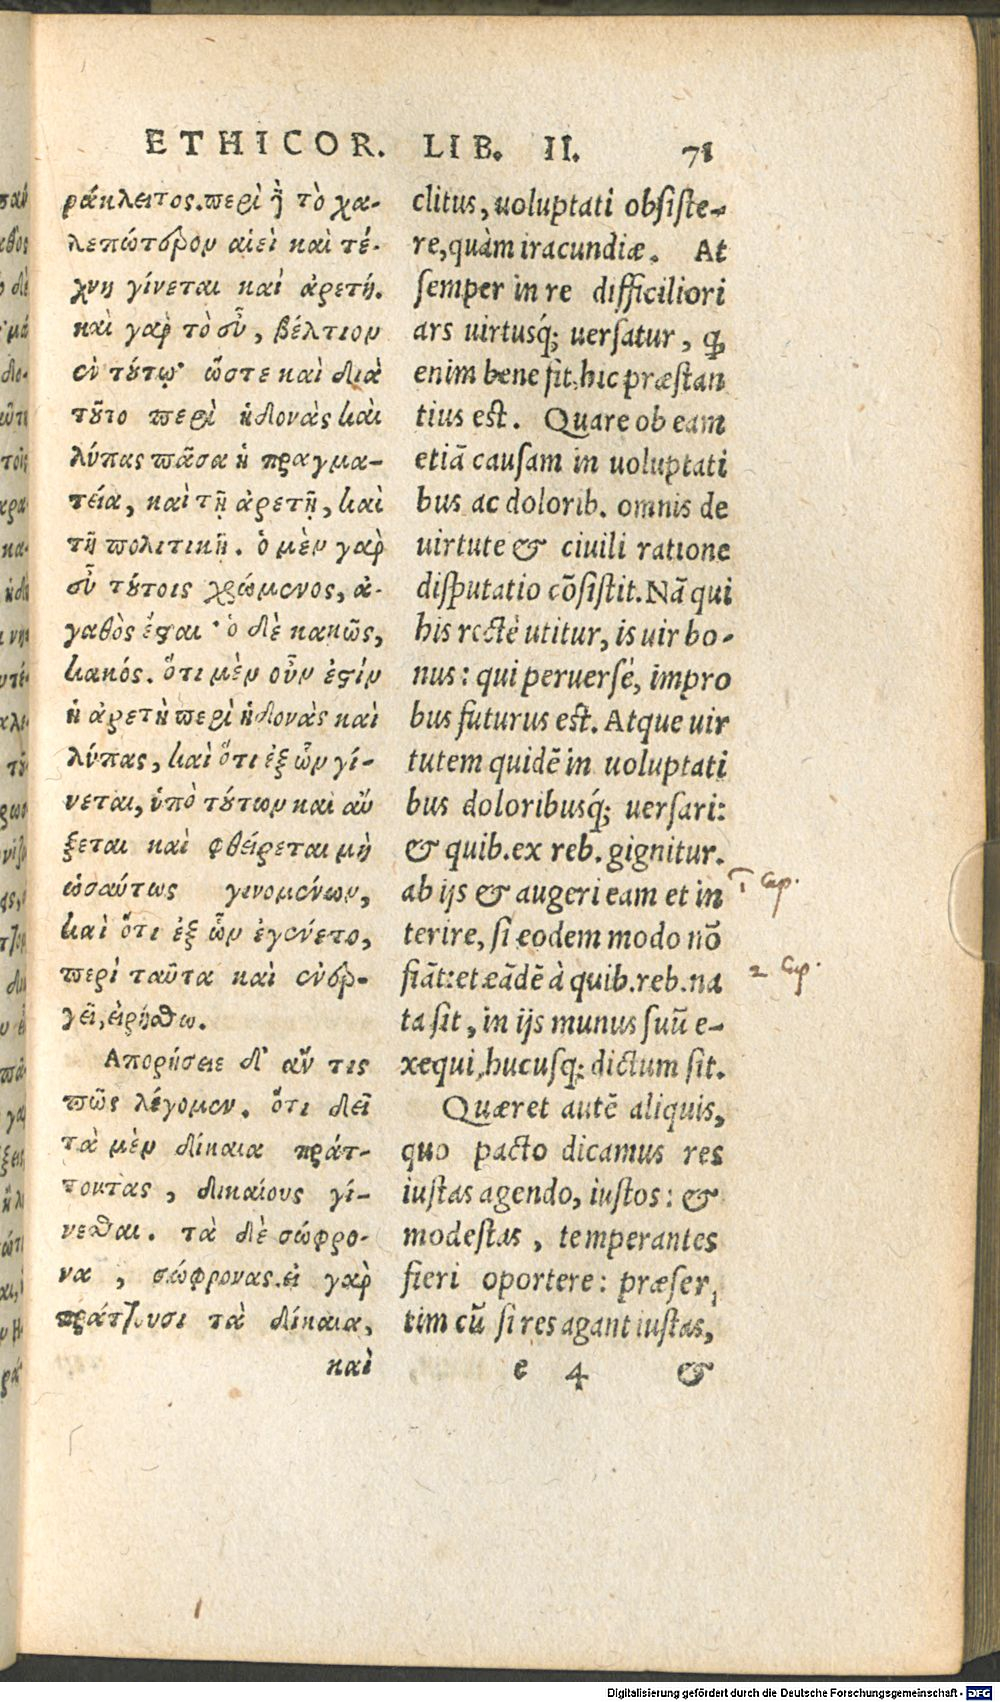 ETHICOR. LIB. II. 71
ράκλειτος. περὶ ἢ τὸ χα-
λεπώτερον αἰεὶ καὶ τέ-
χνη γίνεται καὶ ἀρετή.
καὶ γὰρ τὸ εὖ, βέλτιον
ἐν τούτῳ· ὥστε καὶ διὰ
τοῦτο περὶ ἡδονὰς καὶ
λύπας πᾶσα ἡ πραγμα-
τεία, καὶ τῇ ἀρετῇ, καὶ
τῇ πολιτικῇ. ὁ μὲν γὰρ
εὖ τούτοις χρώμενος, ἀ-
γαθὸς ἔσται· ὁ δὲ κακῶς,
κακός. ὅτι μὲν οὖν ἐστὶν
ἡ ἀρετὴ περὶ ἡδονὰς καὶ
λύπας, καὶ ὅτι ἐξ ὧν γί-
νεται, ὑπὸ τούτων καὶ αὔ
ξεται καὶ φθείρεται μὴ
ὡσαύτως γινομένων,
καὶ ὅτι ἐξ ὧν ἐγένετο,
περὶ ταῦτα καὶ ἐνερ-
γεῖ, εἰρήσθω.
Ἀπορήσειε δ' ἄν τις
πῶς λέγομεν. ὅτι δεῖ
τὰ μὲν δίκαια πράτ-
τοντας, δικαίους γί-
νεσθαι. τὰ δὲ σώφρο-
να, σώφρονας. εἰ γὰρ
πράττουσι τὰ δίκαια,
καὶ
clitus, uoluptati obsiste-
re, quàm iracundiæ. At
semper in re difficiliori
ars uirtusq́; uersatur, ꝙ
enim bene fit, hic præstan
tius est. Quare ob eam
etiã causam in uoluptati
bus ac dolorib. omnis de
uirtute & ciuili ratione
disputatio cõsistit. Nã qui
his rectè utitur, is uir bo-
nus: qui peruersè, impro
bus futurus est. Atque uir
tutem quidẽ in uoluptati
bus doloribusq́; uersari:
& quib. ex reb. gignitur.
ab ijs & augeri eam et in
terire, si eodem modo nõ
fiãt: et eãdẽ à quib. reb. na
ta sit, in ijs munus suũ e-
xequi, hucusq; dictum sit.
Quæret autẽ aliquis,
quo pacto dicamus res
iustas agendo, iustos: &
modestas, temperantes
fieri oportere: præser,
tim cũ si res agant iustas,
e 4 &
1 Cap.
2 Cap.
Digitalisierung gefördert durch die Deutsche Forschungsgemeinschaft - DFG